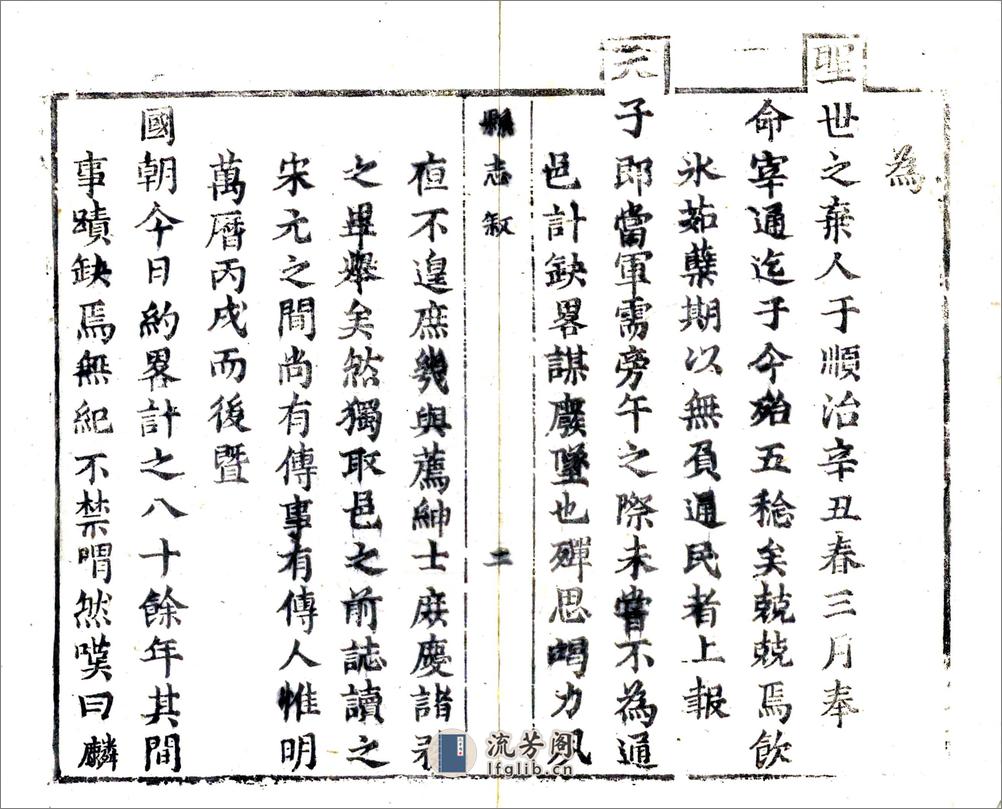 為
聖世之棄人于順治辛丑春三月奉
命宰通迄于今殆五稔矣兢兢焉飲
氷茹蘗期以無負通民者上報
天子即當軍需旁午之際未嘗不為通
邑計缺畧謀廢墜也殫思竭力夙
縣志敘
二
夜不遑庶幾與薦紳士庶慶諸
之畢舉矣然獨取邑之前誌讀之
宋元之間尚有傳事有傳人惟明
萬曆丙戌而後暨
國朝今日約畧計之八十餘年其間
事蹟缺焉無紀不禁喟然嘆曰麟
流芳阁
lfglib.cn